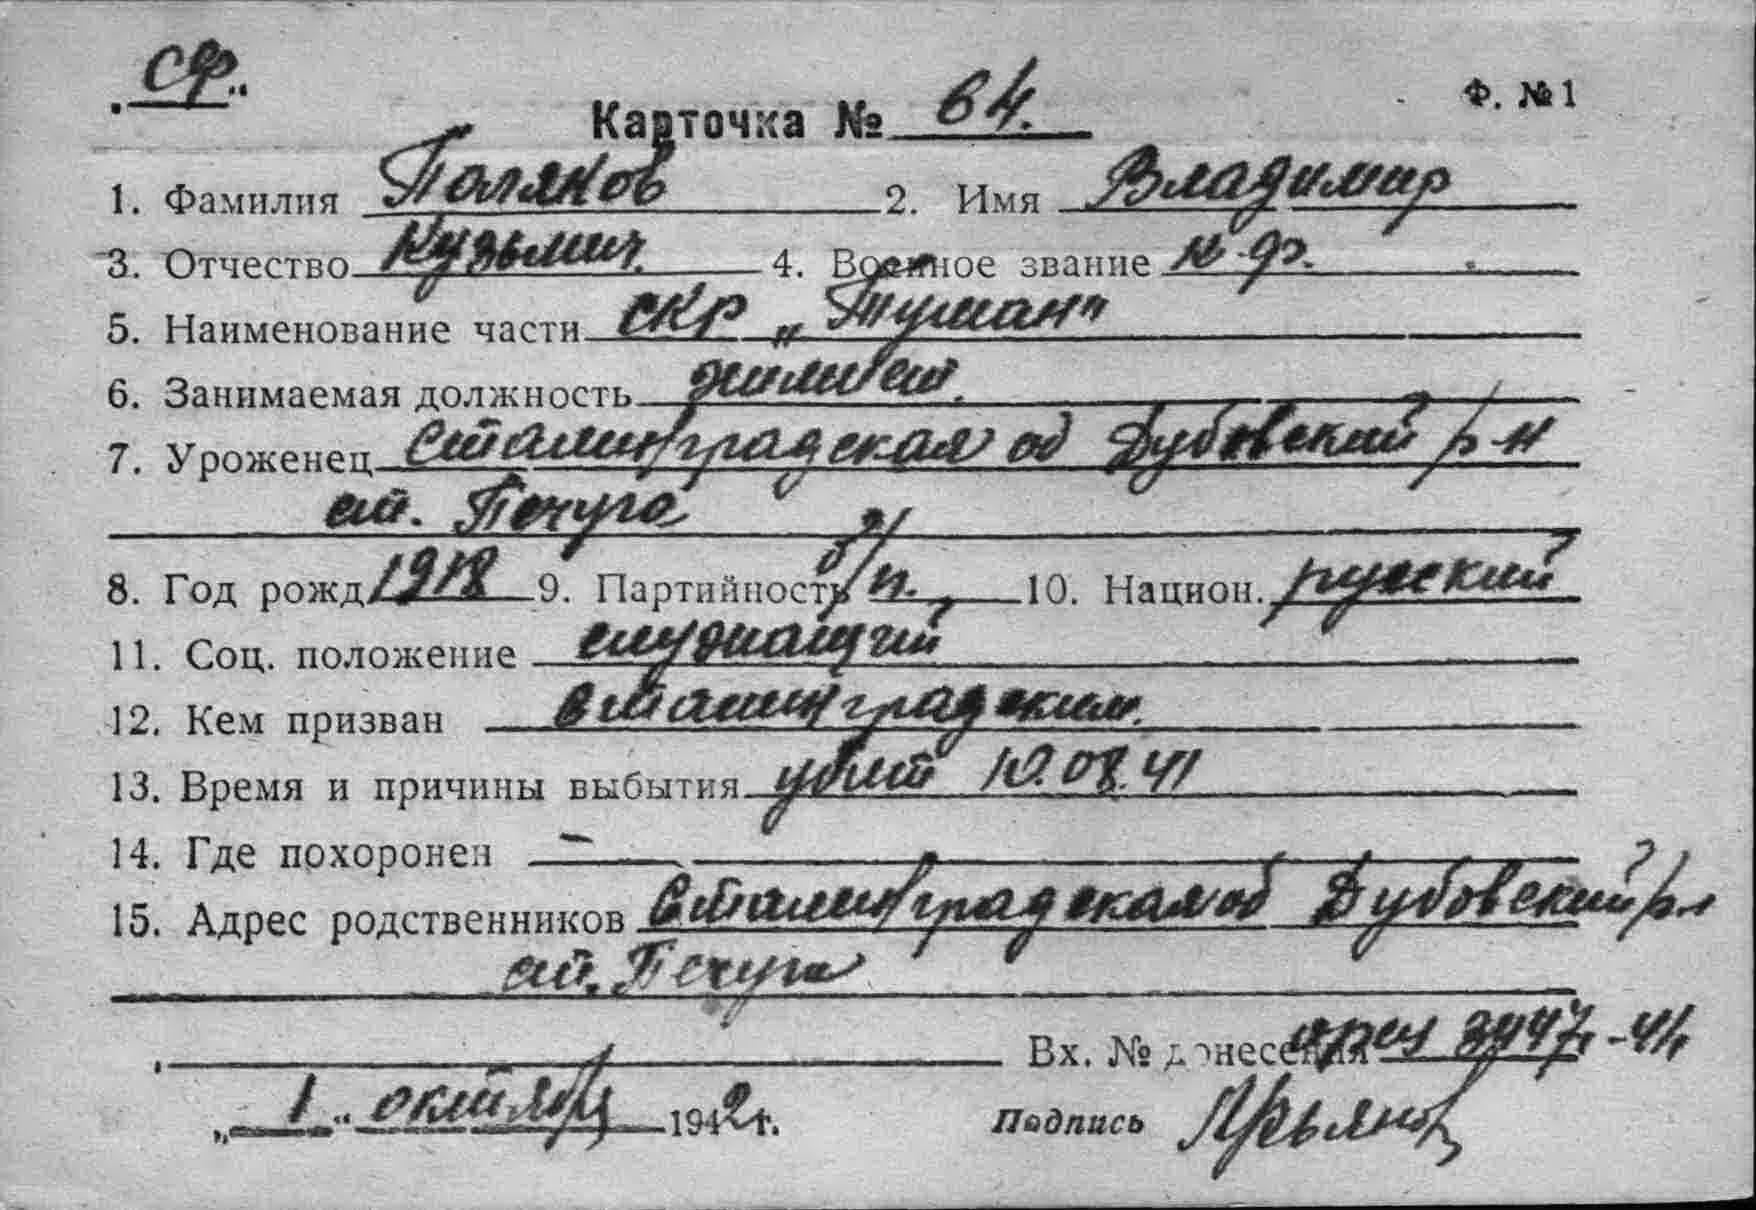 „СФ."
Ф. №1
Карточка № 64.
1. Фамилия Поляков 2. Имя Владимир
3. Отчество Кузьмич 4. Военное звание к.ф.
5. Наименование части СКР „Туман"
6. Занимаемая должность
7. Уроженец Сталинградская об Дубовский р-н
ст. Печуга
8. Год рожд 1918 9. Партийность б/п. 10. Национ. русский
11. Соц. положение служащий
12. Кем призван Сталинградским.
13. Время и причины выбытия убит 10.08.41
14. Где похоронен —
15. Адрес родственников Сталинградская об Дубовский р-н
ст. Печуга
Вх. № донесения
„1" октября 1942 г. Подпись